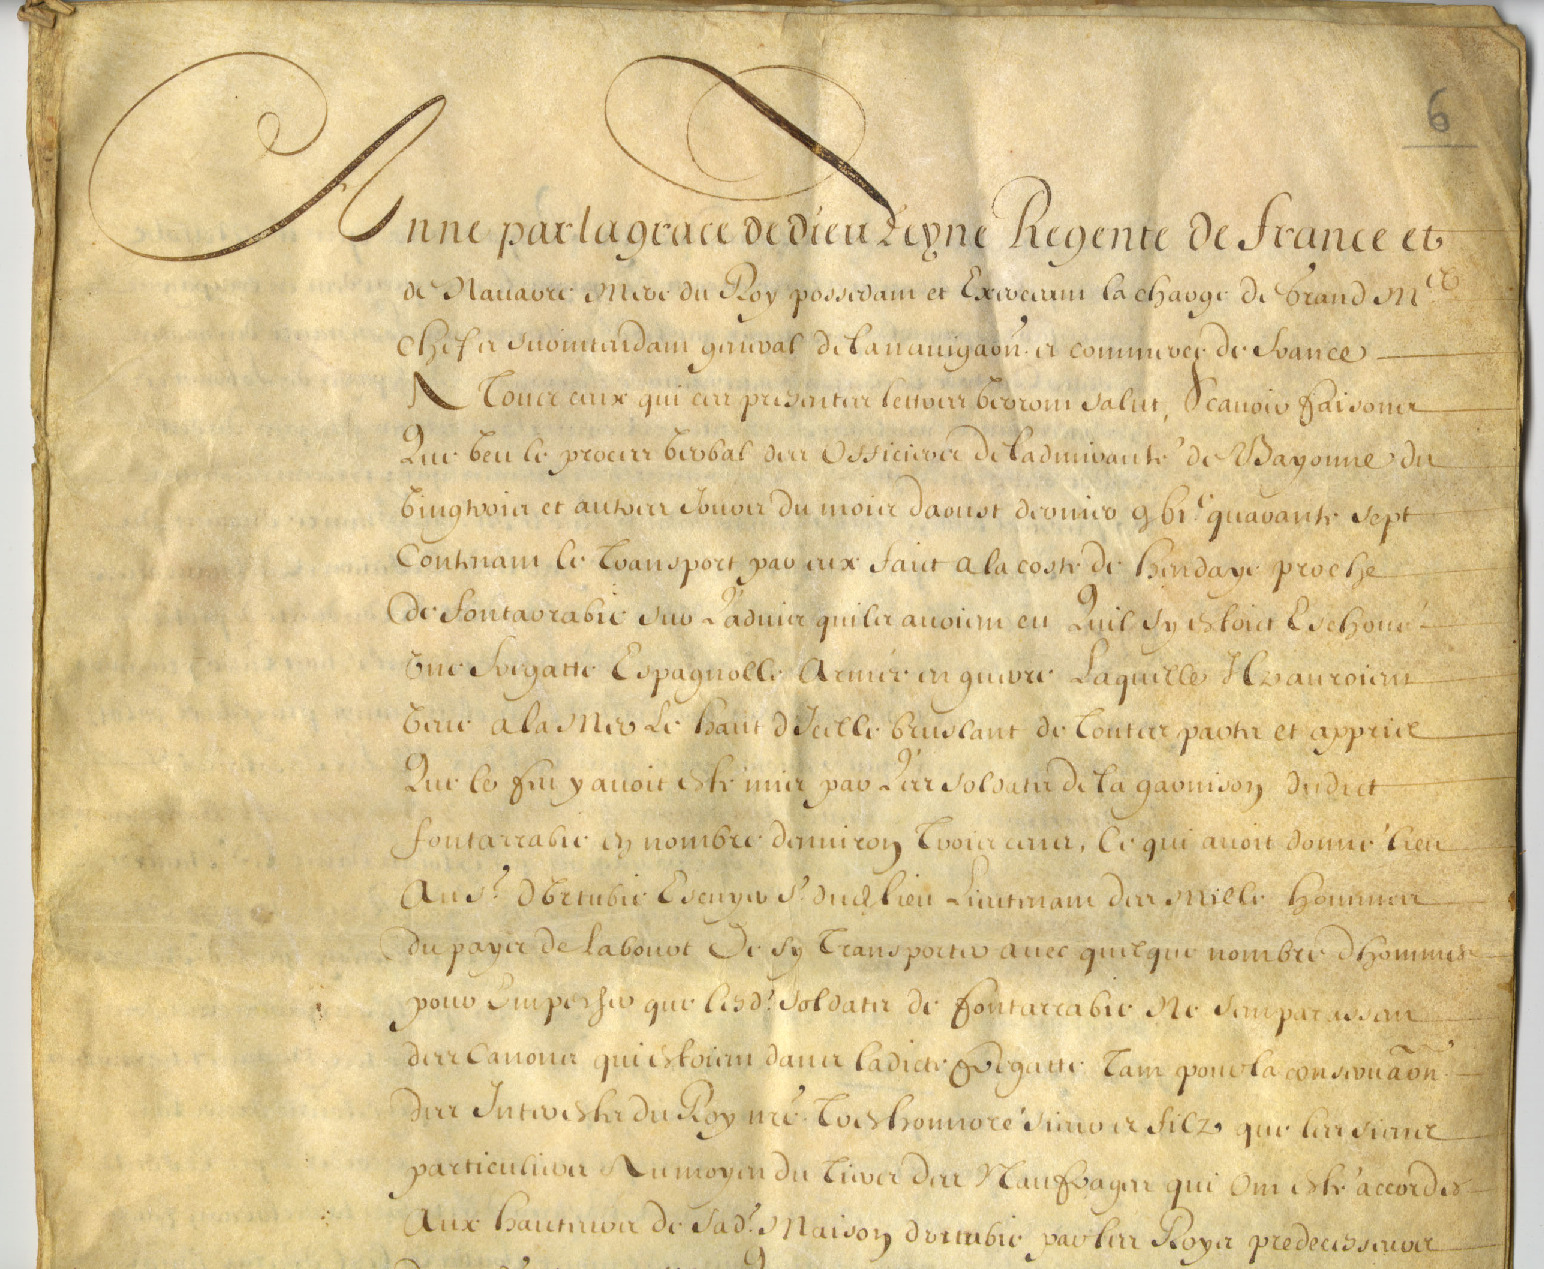 6
Anne par la grace de dieu Reyne Regente de france et
de Nauarre Mere du Roy possedant et Exerceant la charge de Grand Me
Chef et surintendant general de la nauigaon et commerce de france
A Tous ceux qui ces presentes lettres verront salut, Scauoir faisons
Que veu le proces verbal des Officiers de l'admirauté de Bayonne du
vingtrois et autres Jours du mois daoust dernier 9 bi.c quarante sept
Contenant le Transport par eux faict a la coste de hendaye proche
de fontarrabie sur L'aduis quils auoient eu Quil sy estoit Eschoué
Vne fregatte Espagnolle Armée en guerre Laquelle Ilz auroient
veue a la Mer Le haut dIcelle bruslant de Toutes partz et appris
Que le feu y auoit esté mis par Les soldatz de la garnison dudict
fontarrabie en nombre denuiron Trois cens, Ce qui auoit donné lieu
Au sr. dVrtubie Escuyer Sr. dud lieu Lieutenant des Mille hommes
du pays de Labourt De sy Transporter auec quelque nombre dhommes
pour Empescher que lesd. soldatz de fontarrabie Ne semparassent
des Canons qui estoient dans ladicte fregatte Tant pour la conseruaon
des Interestz du Roy nre Treshonnoré sieur et filz, que les siens
particuliers Au moyen du Tiers des Naufrages qui Ont esté accordés
Aux hauteurs de sad. Maison durtubie par les Roys predecesseurs